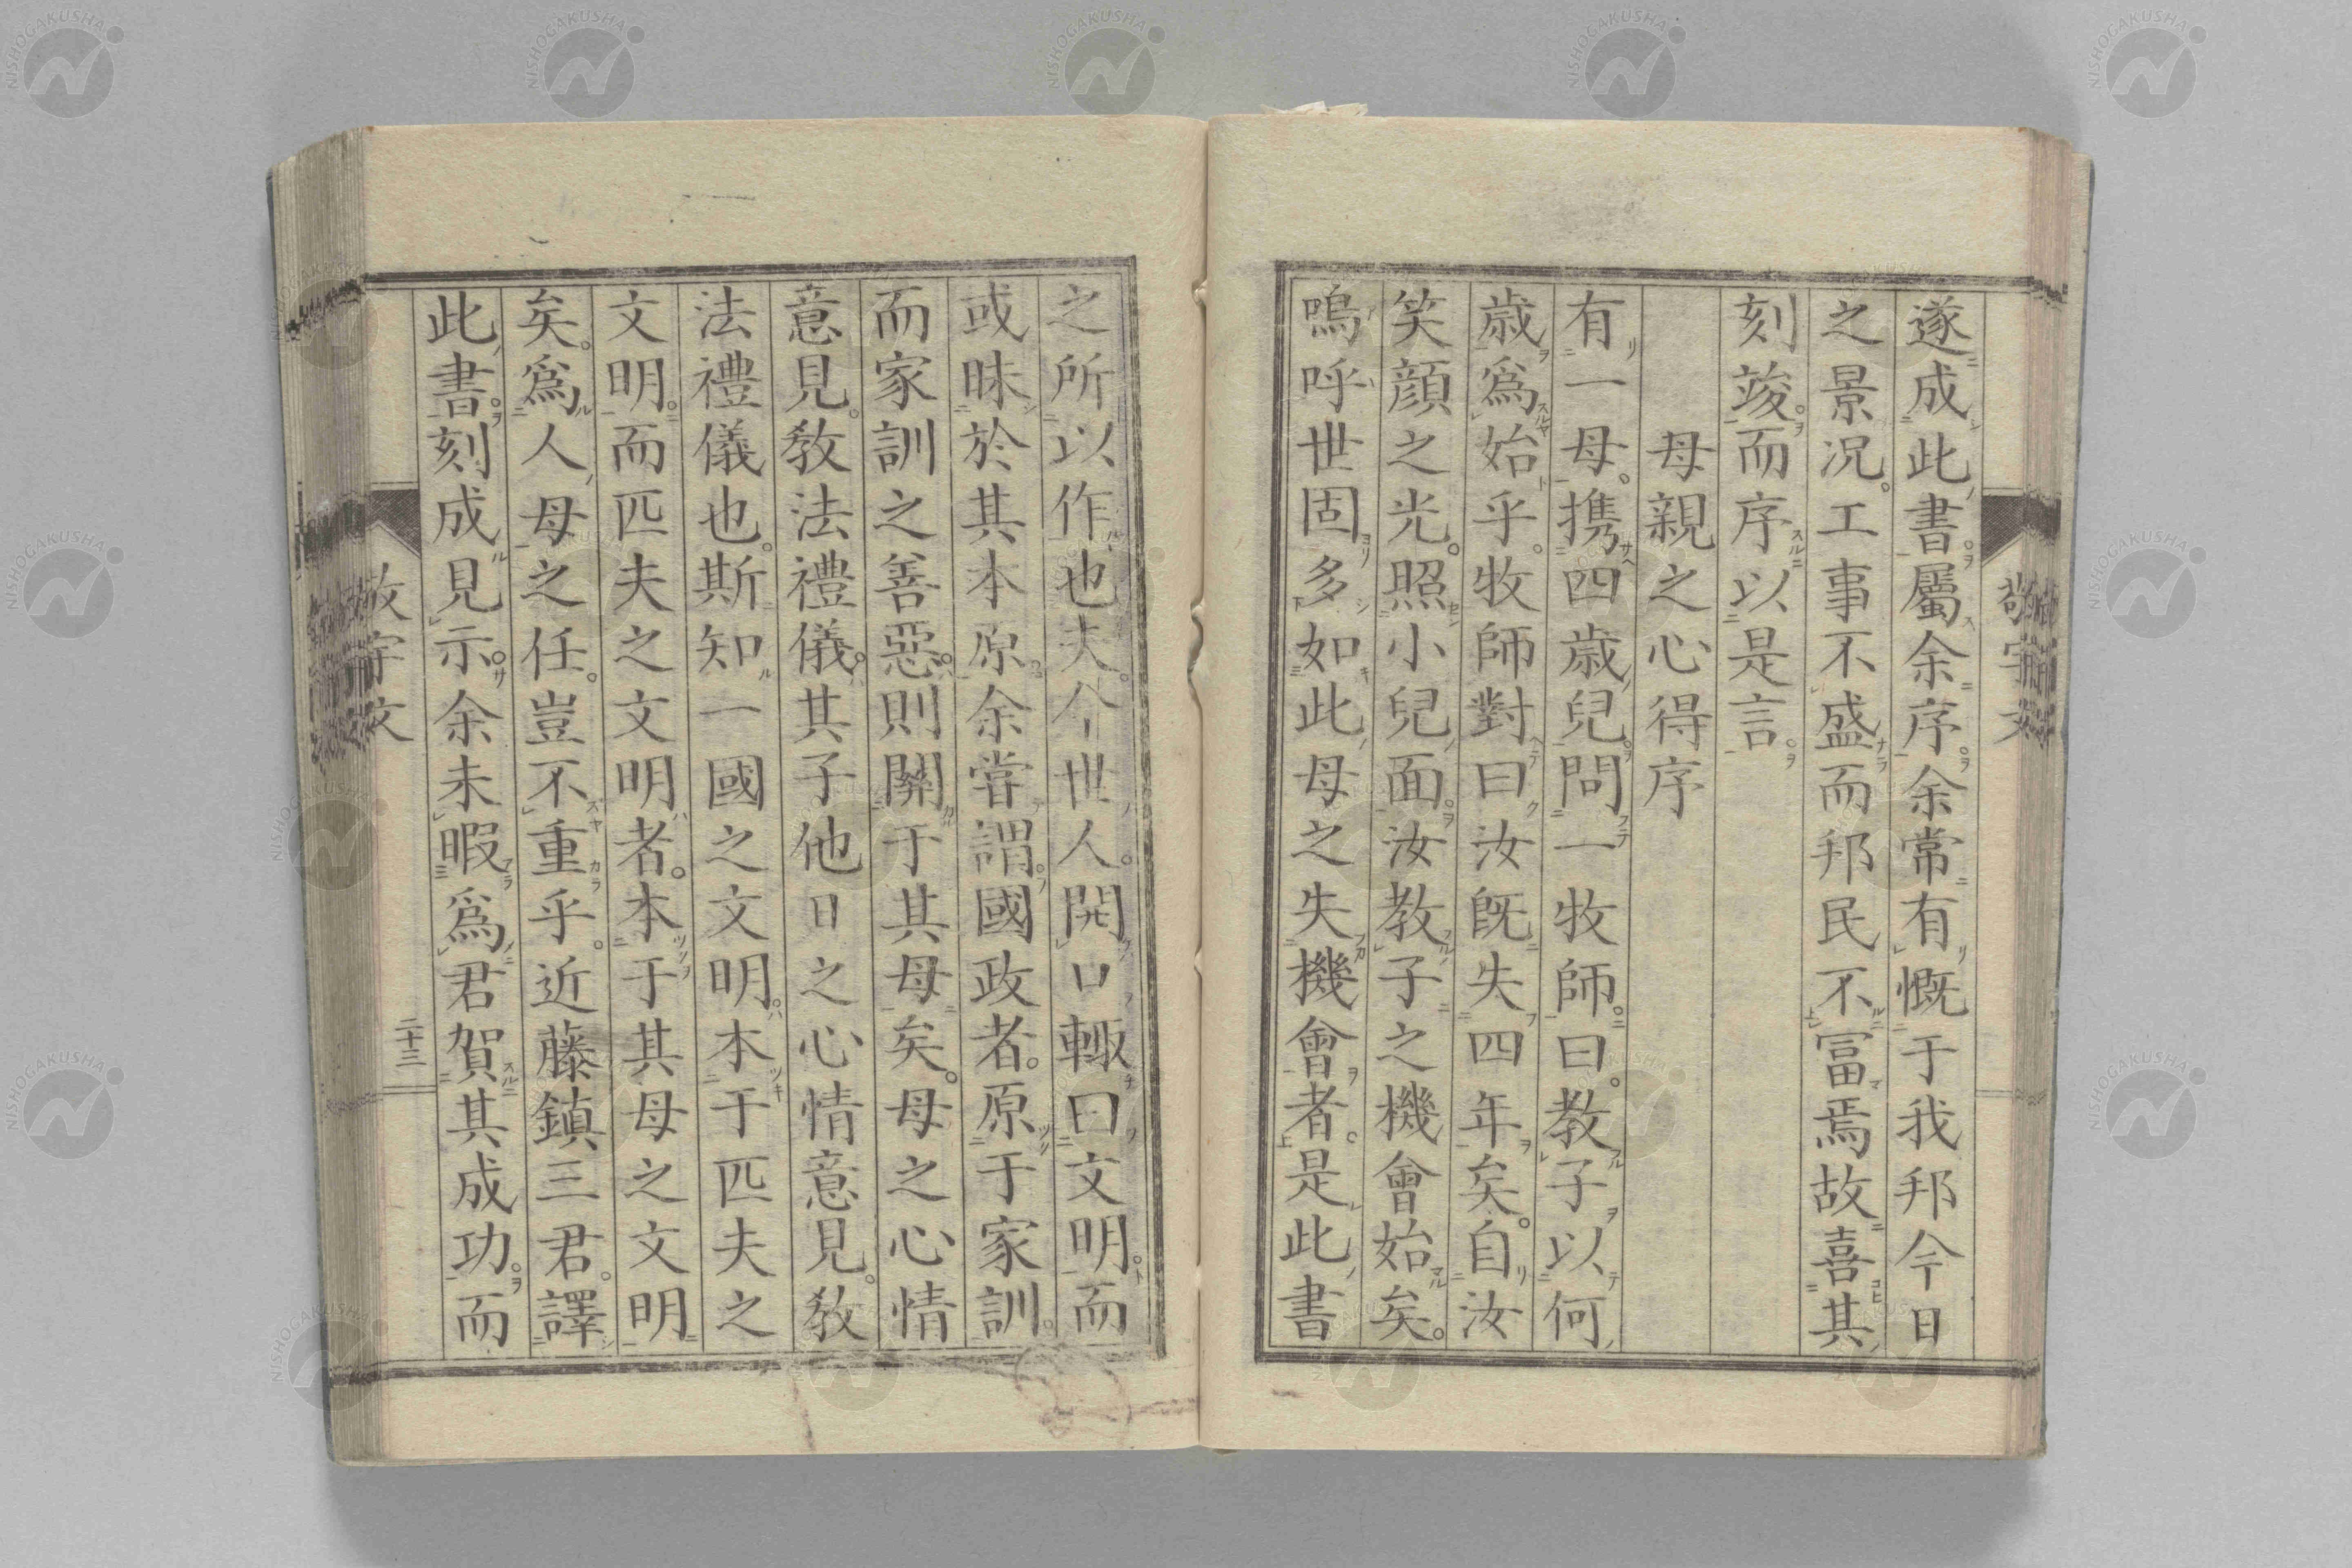 遂成此書。屬余序。余常有慨于我邦今日
之景况。工事不盛而邦民不冨焉故喜其
刻竣。而序以是言。
母親之心得序
有一母。携四歳兒。問一牧師。曰。教子以何
歳爲始乎。牧師對曰汝既失四年矣。自汝
笑顔之光。照小兒面。汝教子之機會始矣。
嗚呼世固多如此母之失機會者。是此書
之所以作也。夫今世人。開口輙曰文明。而
或昧於其本原。余嘗謂。國政者。原于家訓。
而家訓之善惡。則關于其母矣。母之心情
意見。教法禮儀。其子他日之心情意見。教
法禮儀也。斯知一國之文明。本于匹夫之
文明。而匹夫之文明者。本于其母之文明
矣。爲人母之任。豈不重乎。近藤鎮三君。譯
此書。刻成見示。余未暇爲君賀其成功。而
敬宇文
二十三
敬宇文
NISHOGAKUSHA